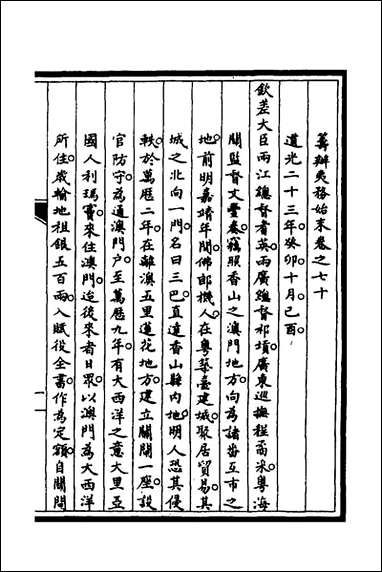 籌辦夷務始末卷之七十
道光二十三年癸卯十月己酉
欽差大臣兩江總督耆英兩廣總督祁墳廣東巡撫程矞采粵海
關監督文豐奏竊照香山之澳門地方向為諸番互市之
地前明嘉靖年間佛郎機人在粵築臺建城聚居貿易其
城之北向一門名曰三巴直達香山縣內地明人恐其侵
軼於萬厯二年在離澳五里蓮花地方建立關閘一座設
官防守為通澳門戶至萬厯九年有大西洋之意大里亞
國人利瑪竇來住澳門迨後來者日眾以澳門為大西洋
所住歲輸地租銀五百兩入賦役全書作為定額自關閘